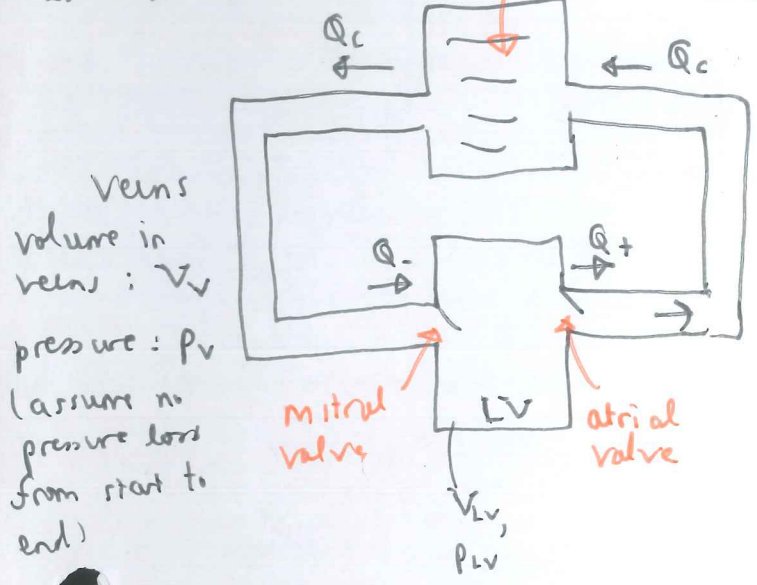 Qc
Qc
Veins
volume in
veins : Vv
pressure : Pv
(assume no
pressure loss
from start to
end)
Q-
Q+
mitral
valve
LV
atrial
valve
VLV,
PLV